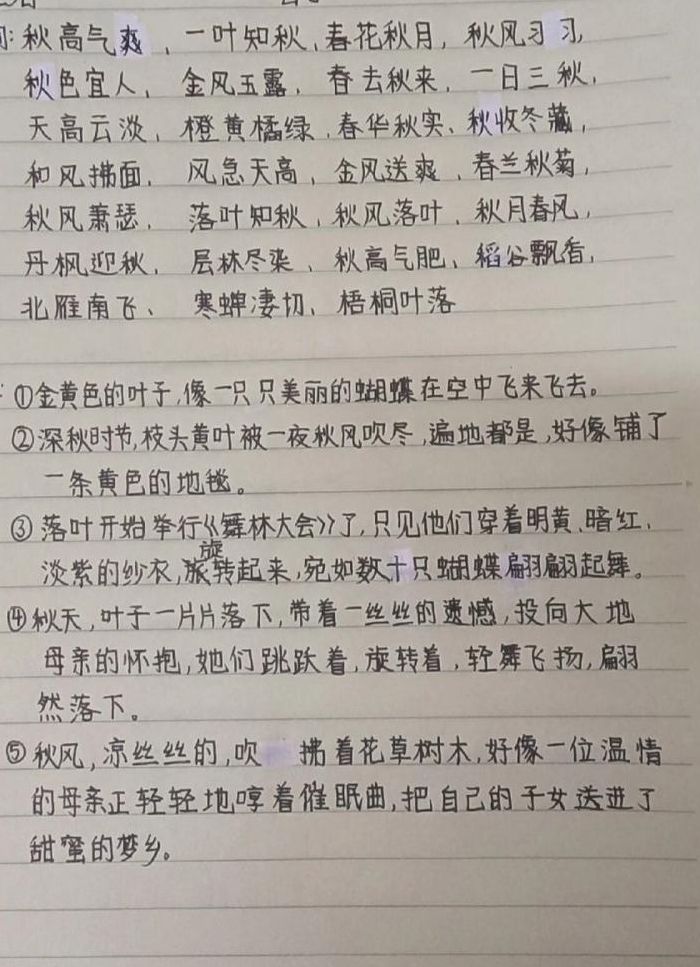 秋高气爽，一叶知秋、春花秋月，秋风习习，
秋色宜人，金风玉露，春去秋来，一日三秋，
天高云淡，橙黄橘绿，春华秋实、秋收冬藏，
和风拂面，风急天高，金风送爽，春兰秋菊，
秋风萧瑟，落叶知秋，秋风落叶、秋月春风，
丹枫迎秋，层林尽染、秋高气肥、稻谷飘香，
北雁南飞、寒蝉凄切、梧桐叶落
①金黄色的叶子，像一只只美丽的蝴蝶在空中飞来飞去。
②深秋时节，枝头黄叶被一夜秋风吹尽，遍地都是，好像铺了
一条黄色的地毯。
③落叶开始举行《舞林大会》了，只见他们穿着明黄、暗红、
淡紫的纱衣，旋转起来，宛如数十只蝴蝶翩翩起舞。
④秋天，叶子一片片落下，带着一丝丝的遗憾，投向大地
母亲的怀抱，她们跳跃着，旋转着，轻舞飞扬，翩
然落下。
⑤秋风，凉丝丝的，吹拂着花草树木，好像一位温情
的母亲正轻轻地哼着催眠曲，把自己的子女送进了
甜蜜的梦乡。